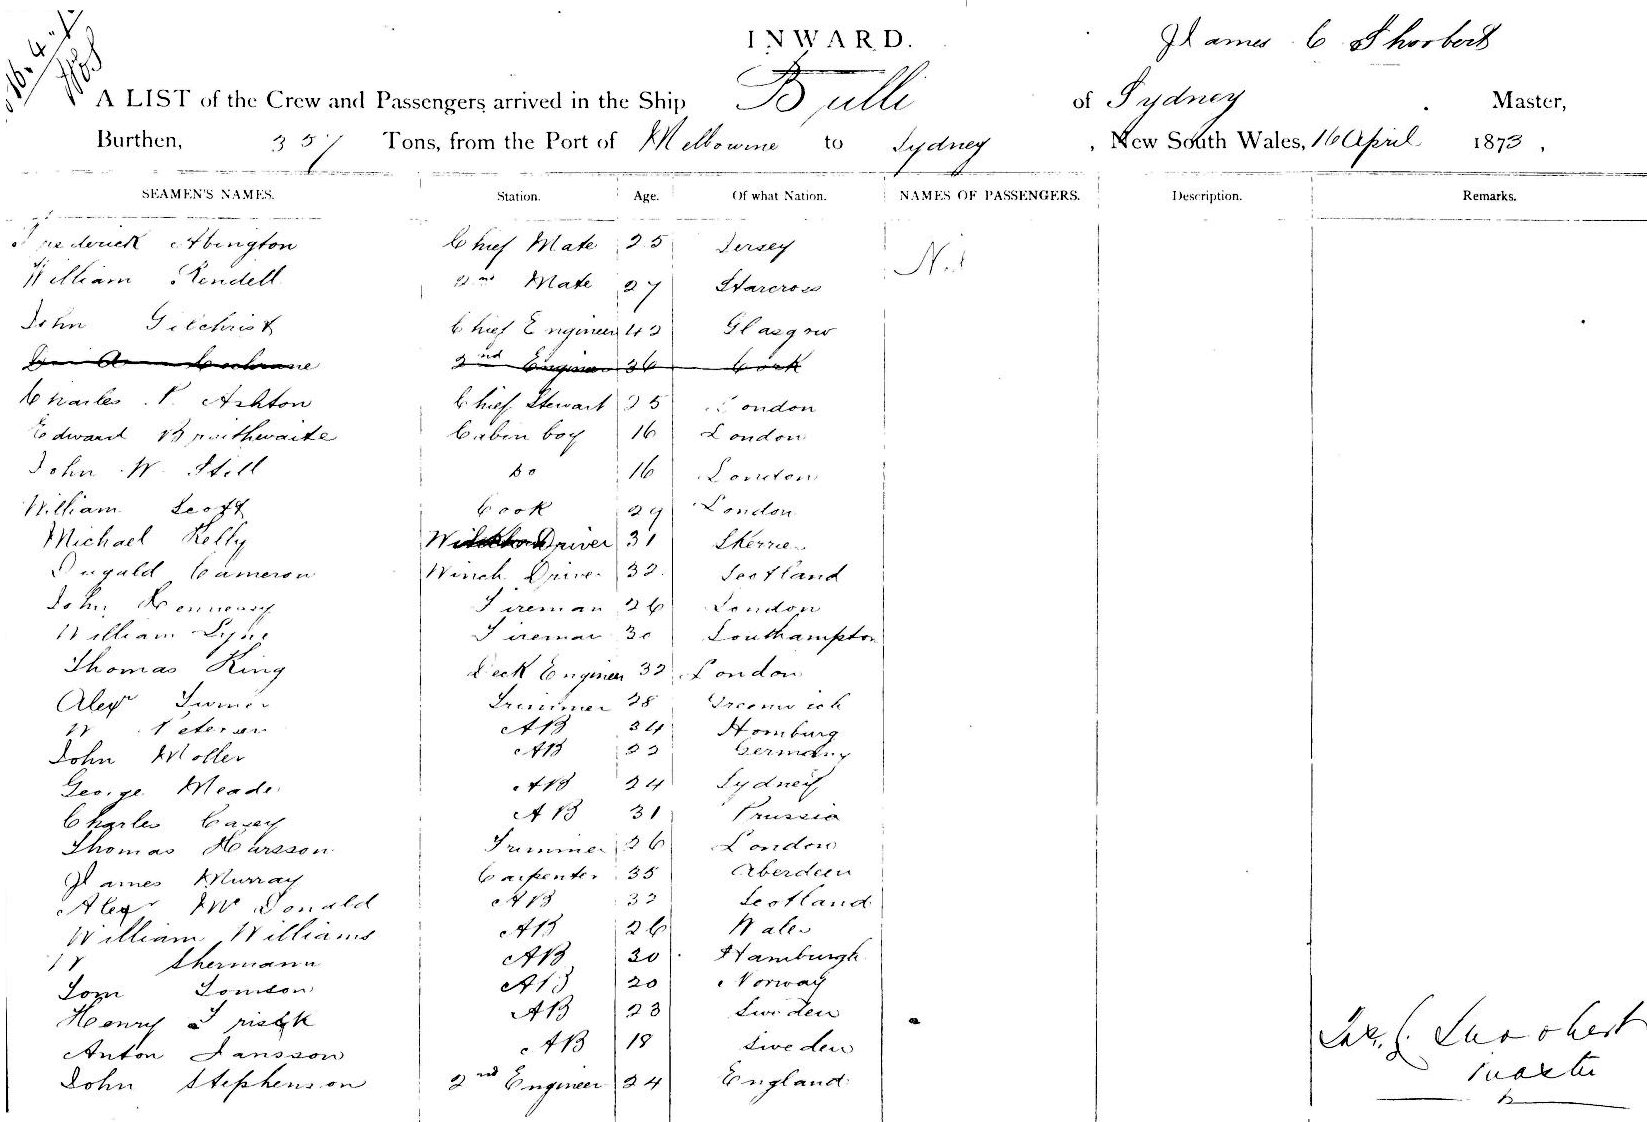 16.4.
INWARD.
James C Shoobert
A LIST of the Crew and Passengers arrived in the Ship Bulli of Sydney Master,
Burthen, 357 Tons, from the Port of Melbourne to Sydney, New South Wales, 16 April 1873,
SEAMEN'S NAMES. Station. Age. Of what Nation. NAMES OF PASSENGERS. Description. Remarks.
Frederick Abington Chief Mate 25 Jersey Nil
William Rendell 2nd Mate 27 Starcross
John Gilchrist Chief Engineer 42 Glasgow
Cochrane 2nd Engineer 36 Cork
Charles P. Ashton Chief Stewart 25 London
Edward Braithwaite Cabin boy 16 London
John W Still Do 16 London
William Scott Cook 29 London
Michael Kelly Driver 31 Skerries
Dugald Cameron Winch Driver 32 Scotland
John Hennessy Fireman 26 London
William Lyne Fireman 30 Southampton
Thomas King Deck Engineer 32 London
Alexr Turner Trimmer 28 Greenwich
W Petersen AB 34 Homburg
John Moller AB 22 Germany
George Meade AB 24 Sydney
Charles Casey AB 31 Prussia
Thomas Harsson Trimmer 26 London
James Murray Carpenter 35 Aberdeen
Alexr McDonald AB 32 Scotland
William Williams AB 26 Wales
W Shermann AB 30 Hamburgh
Tom Tomson AB 20 Norway
Henry Frisck AB 23 Sweden
Anton Jansson AB 18 Sweden
John Stephenson 2nd Engineer 24 England
Jas. C. Shoobert
Master